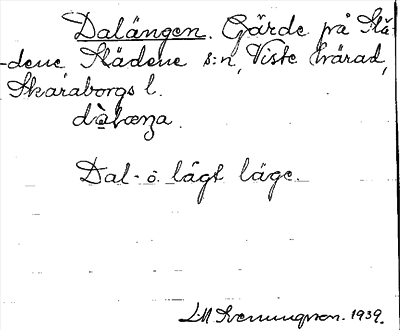 Dalängen. Gärde på Slä-
-dene Slädene s:n, Viste härad,
Skaraborgs l.
dàlæŋa.
Dal- o. lågt läge.
L.M. Svenungsson. 1939.